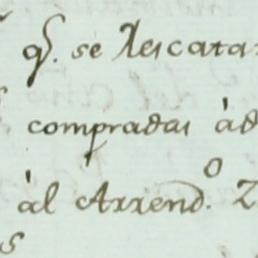 q.^e se Rescata
compradas àd
àl Arrend.^o